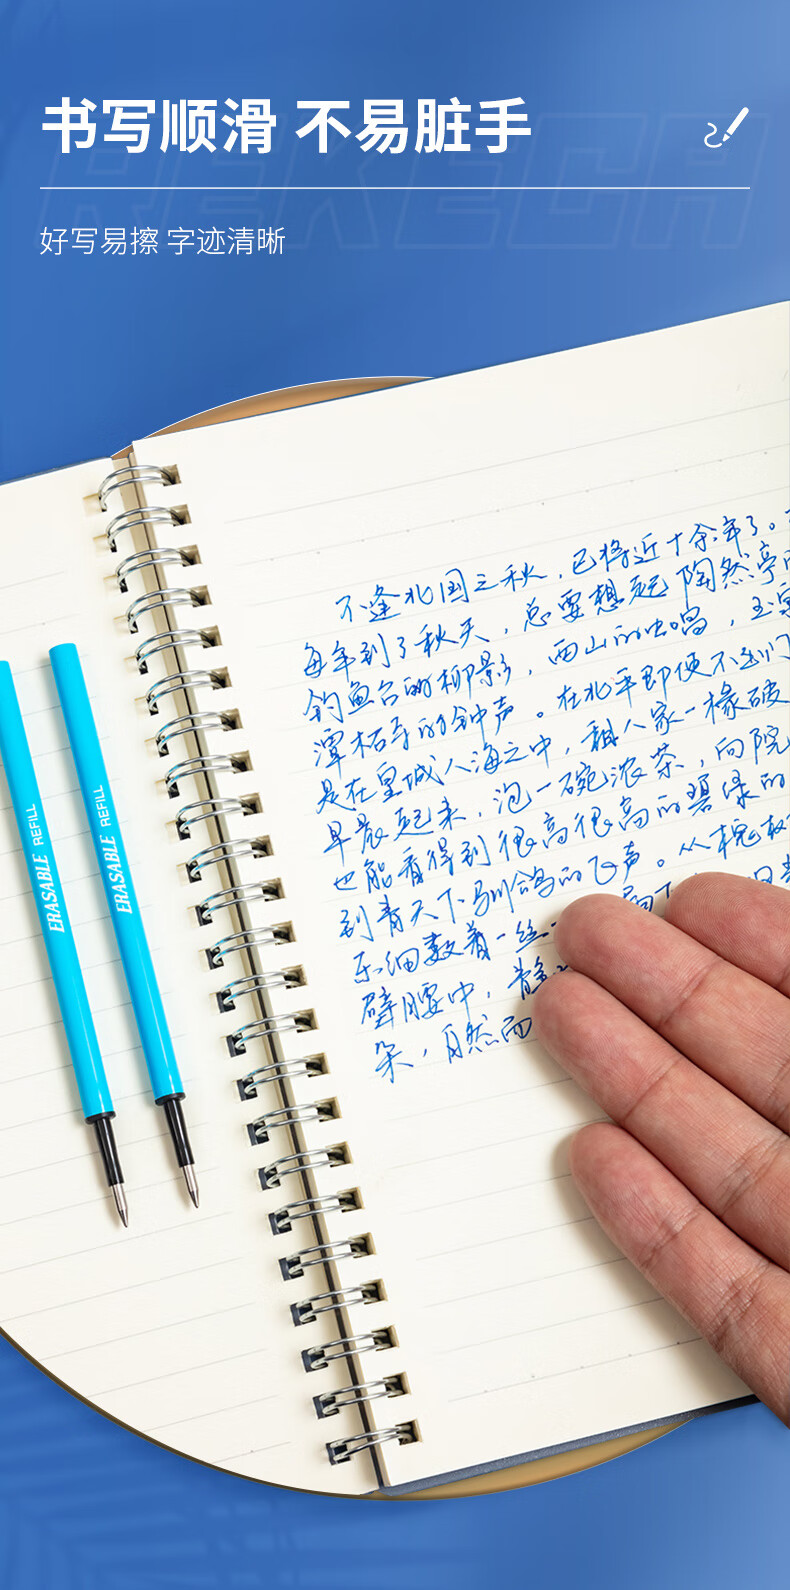 书写顺滑 不易脏手
好写易擦 字迹清晰
不逢北国之秋，已将近十余年了。
每年到了秋天，总要想起陶然亭
钓鱼台的柳影，西山的虫唱，玉
潭柘寺的钟声。在北平即使不出门
是在皇城人海之中，租人家一椽破
早晨起来，泡一碗浓茶，向院
也能看得到很高很高的碧绿的
到青天下驯鸽的飞声。从槐树
细数着一丝
壁腰中，静
朵，自然而
ERASABLE REFILL
ERASABLE REFILL
REKECH